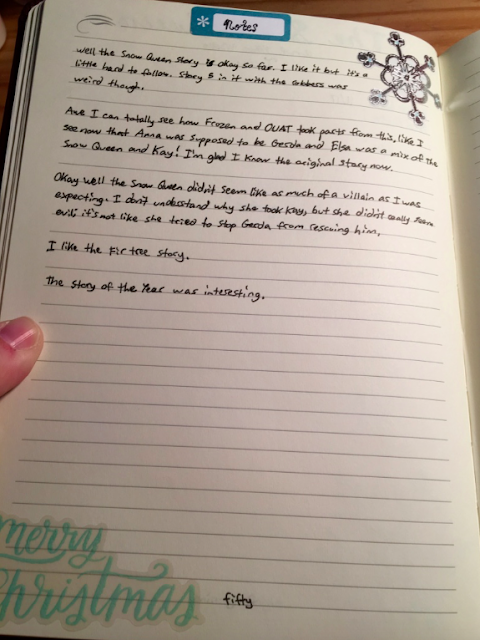 Notes
well the Snow Queen story is okay so far. I like it but it's a
little hard to follow. Story 5 in it with the robbers was
weird though.
And I can totally see how Frozen and OUAT took parts from this, like I
see now that Anna was supposed to be Gerda and Elsa was a mix of the
Snow Queen and Kay! I'm glad I know the original story now.
Okay well the Snow Queen didn't seem like as much of a villain as I was
expecting. I don't understand why she took Kay, but she didn't really seem
evil; it's not like she tried to stop Gerda from rescuing him.
I like the Fir tree story.
The story of the Year was interesting.
merry
christmas
fifty